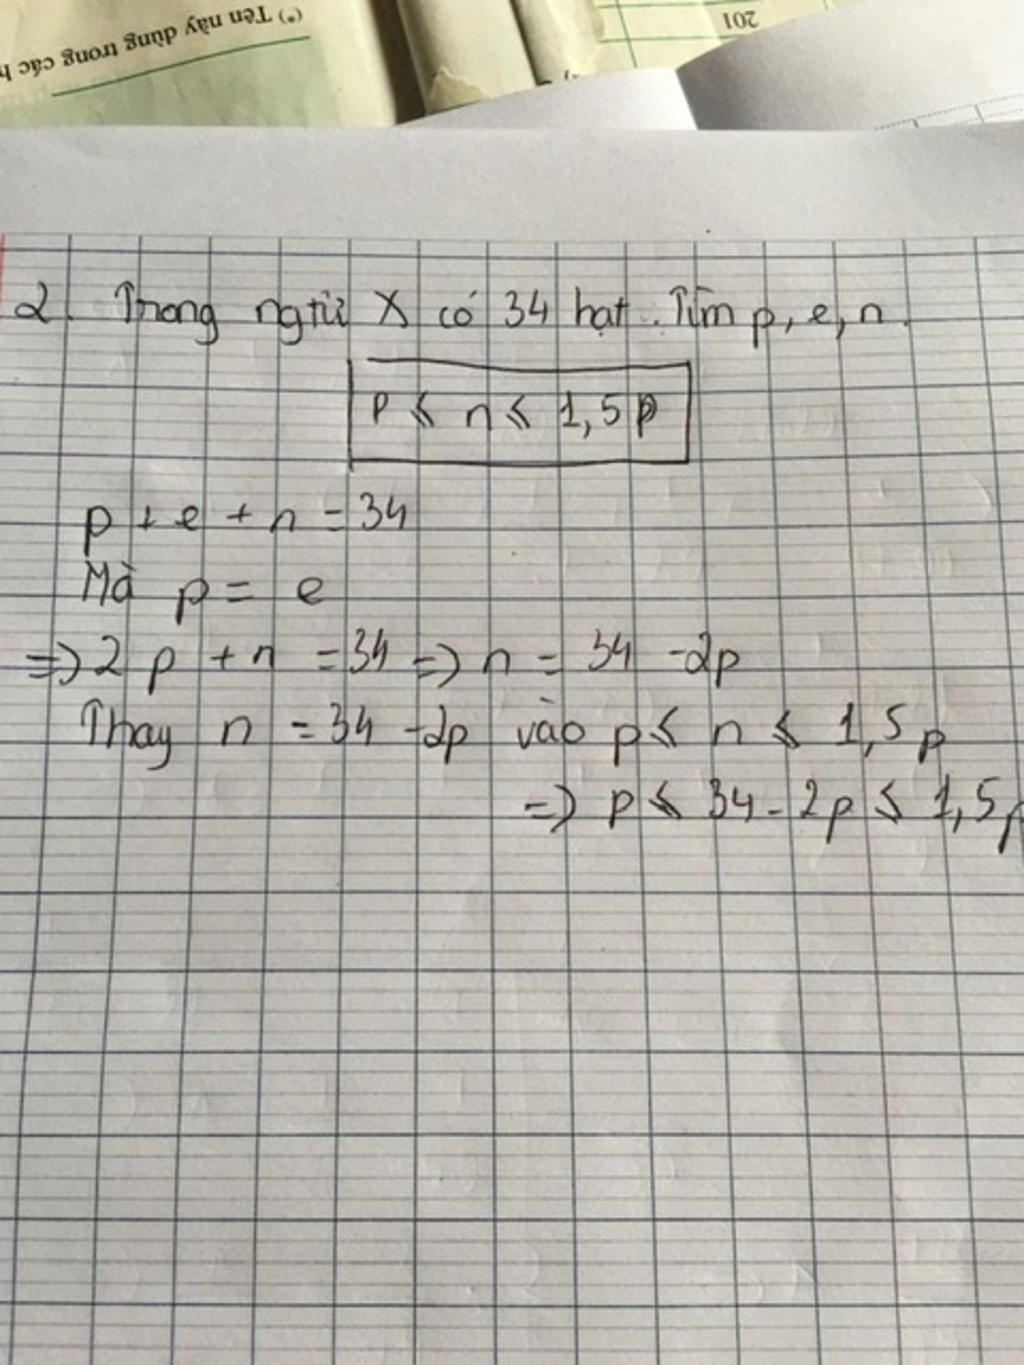 (*) Tên này dùng trong các h
201
2. Trong ngtử X có 34 hạt. Tìm p, e, n.
p ≤ n ≤ 1,5p
p + e + n = 34
Mà p = e
=> 2p + n = 34 => n = 34 - 2p
Thay n = 34 - 2p vào p ≤ n ≤ 1,5p
=> p ≤ 34 - 2p ≤ 1,5p